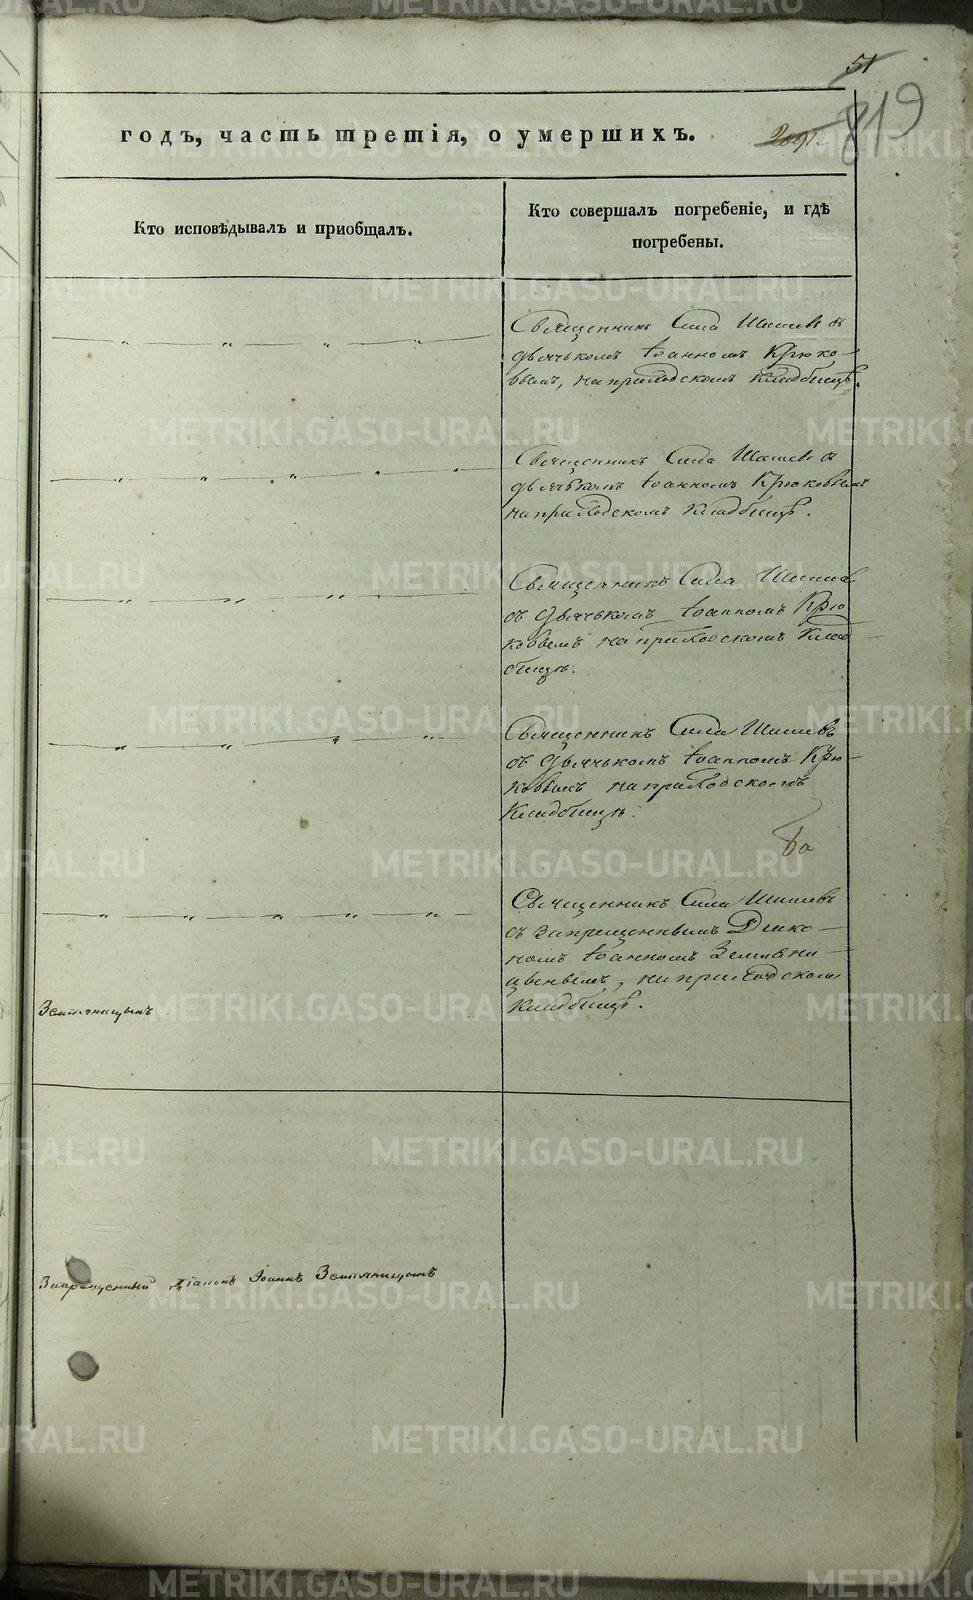 51
819
годъ, часть третія, о умершихъ.
Кто исповѣдывалъ и приобщалъ.
Кто совершалъ погребеніе, и гдѣ
погребены.
Священникъ Сила Шишевъ съ
дьячькомъ Іоанномъ Крюко-
вымъ, на приходскомъ кладбищѣ.
Священникъ Сила Шишевъ съ
дьячькомъ Іоанномъ Крюковымъ
на приходскомъ кладбищѣ.
Священникъ Сила Шишевъ
съ дьячькомъ Іоанномъ Крю
ковымъ на приходскомъ клад
бищѣ.
Священникъ Сила Шишевъ
съ дьячькомъ Іоанномъ Крю-
ковымъ на приходскомъ
кладбищѣ.
Священникъ Сила Шишевъ
съ запрещеннымъ Діако-
номъ Іоанномъ Земляни-
цынымъ, на приходскомъ
кладбищѣ.
Земляницынъ
Запрещенный Діаконъ Іоаннъ Земляницынъ
METRIKI.GASO-URAL.RU